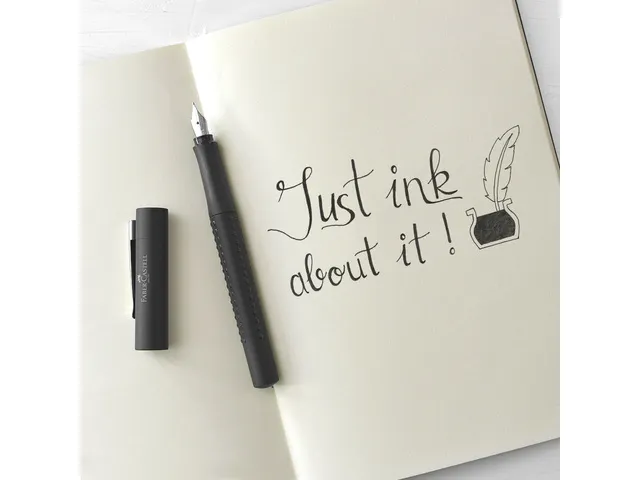 Just ink
about it!
FABER-CASTELL